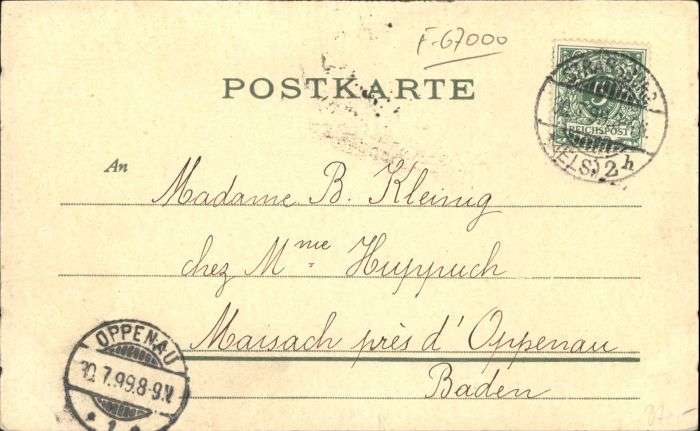 F-67000
POSTKARTE
STRASSBURG
5
REICHSPOST
(ELS) 2 h
An
Madame B. Kleinig
chez Mme Huppuch
Maisach près d'Oppenau
Baden
OPPENAU
30.7.99.8-9.V.
* 1 *